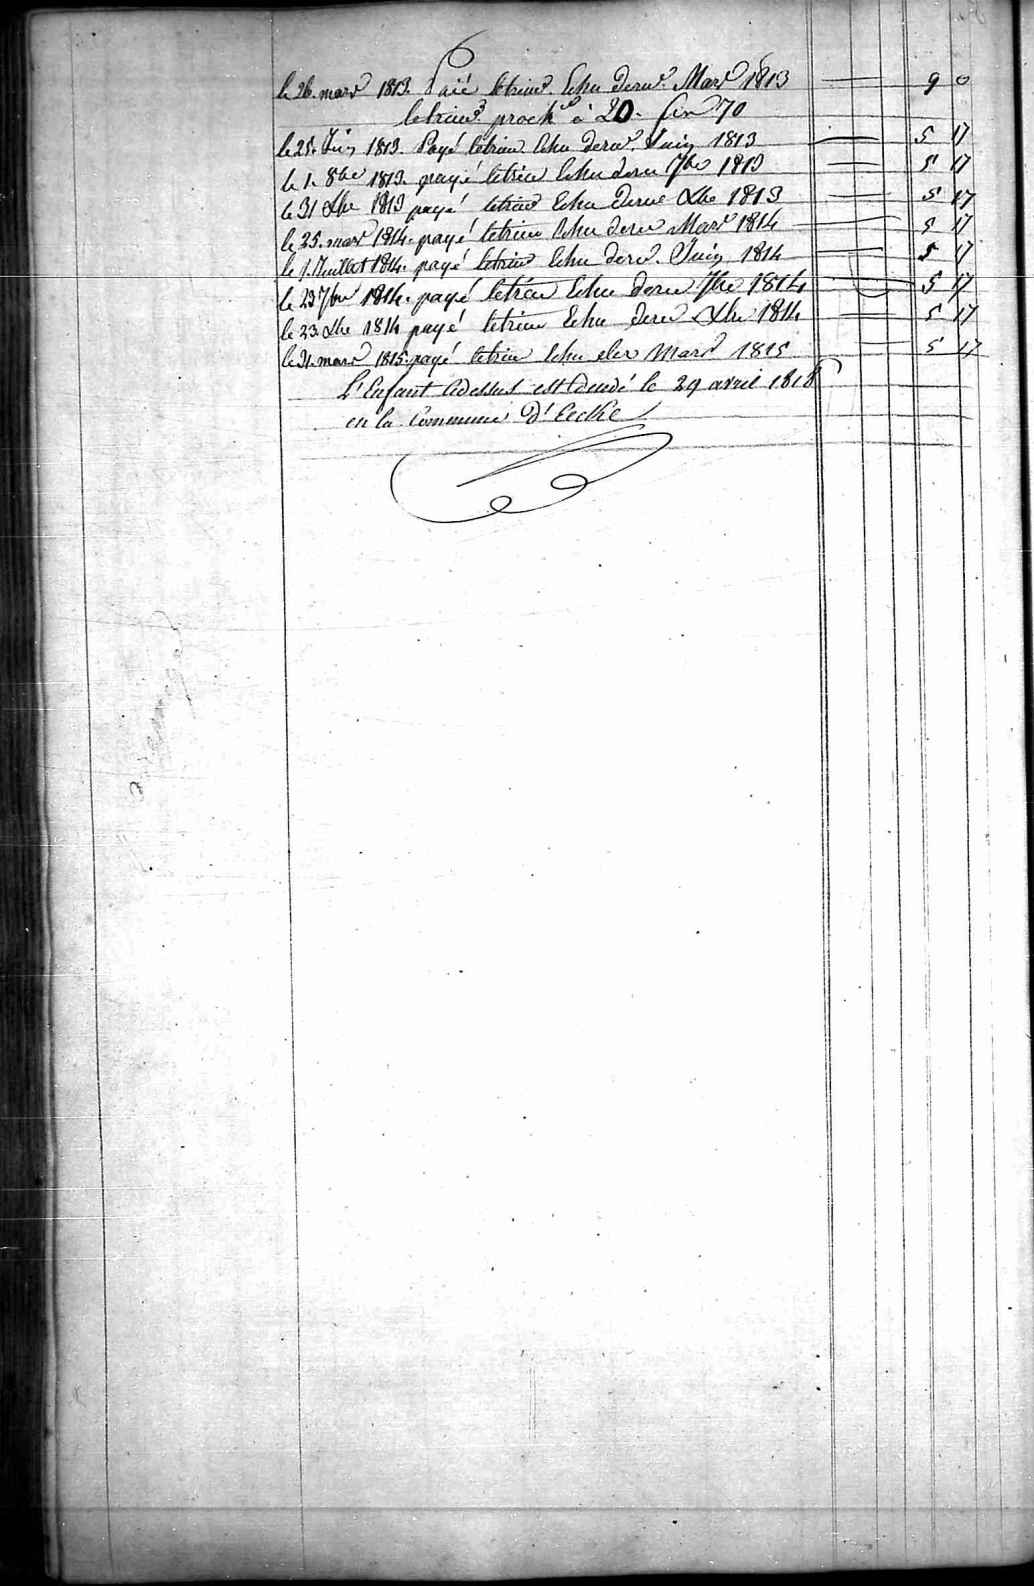 le 26. mars 1813. Paié letrim.e Echu dern.r Mars 1813 9 0
letrim.e proch.n à 20. fin 70
le 25. Juin 1813. Payé letrim Echu dern.r Juin 1813 5 17
le 1. 8bre 1813. payé letrim Echu dern 7bre 1813 5 17
le 31 Xbre 1813 payé letrim Echu dern Xbre 1813 5 17
le 25. mars 1814. payé letrim Echu dern Mars 1814 5 17
le 1. Juillet 1814. payé letrim Echu dern. Juin 1814 5 17
le 23 7bre 1814. payé letrim Echu dern 7bre 1814 5 17
le 23 Xbre 1814 payé letrim Echu dern Xbre 1814 5 17
le 31. mars 1815. payé letrim Echu der Mars 1815 5 17
L'Enfant Cidessus est décedé le 29 avril 1818
en la Commune d'Eecke